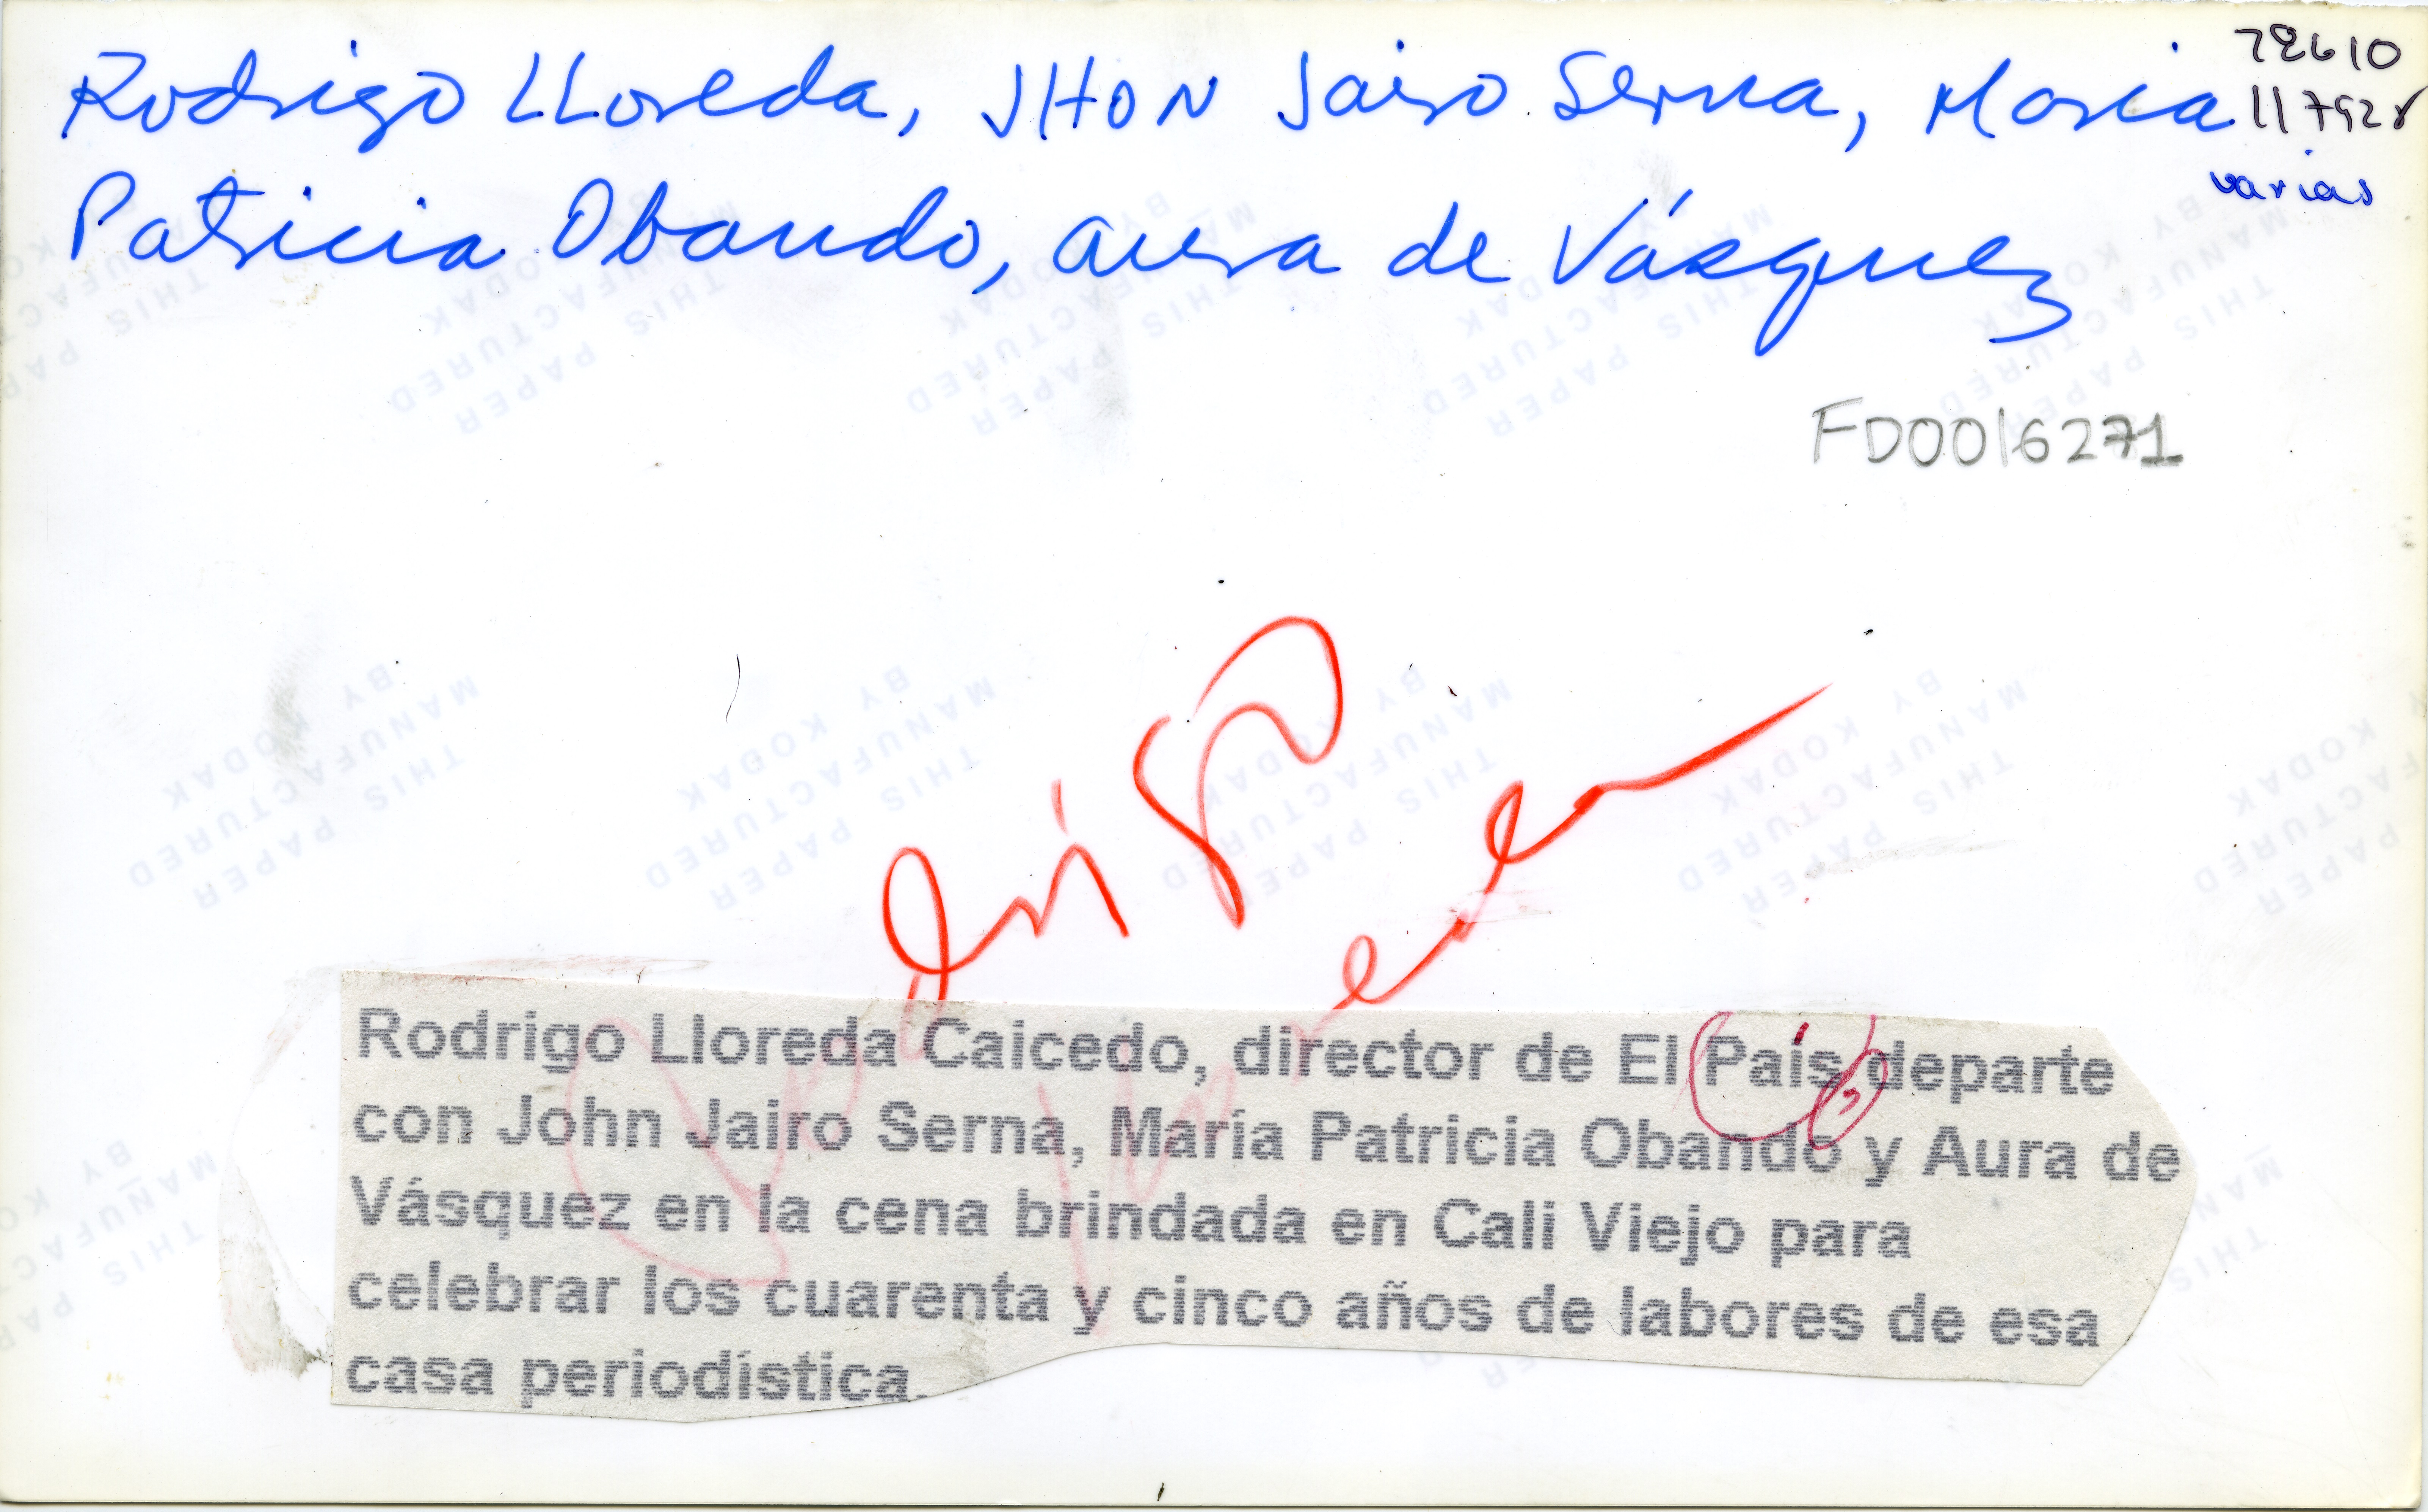 Rodrigo LLoreda, JHON Jairo Serna, Maria
Patricia Obando, aura de Vásquez
78610
varias
FD0016271
Rodrigo
Lloreda
Rodrigo Lloreda Caicedo, director de El País departe
con John Jairo Serna, María Patricia Obando y Aura de
Vásquez en la cena brindada en Cali Viejo para
celebrar los cuarenta y cinco años de labores de esa
casa periodística.
THIS PAPER
MANUFACTURED
BY KODAK